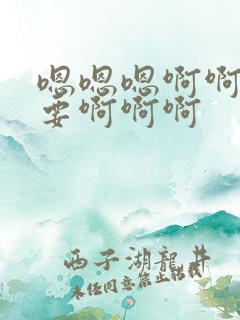 嗯嗯嗯啊啊
要啊啊啊
西子湖龍井
未经同意禁止转载